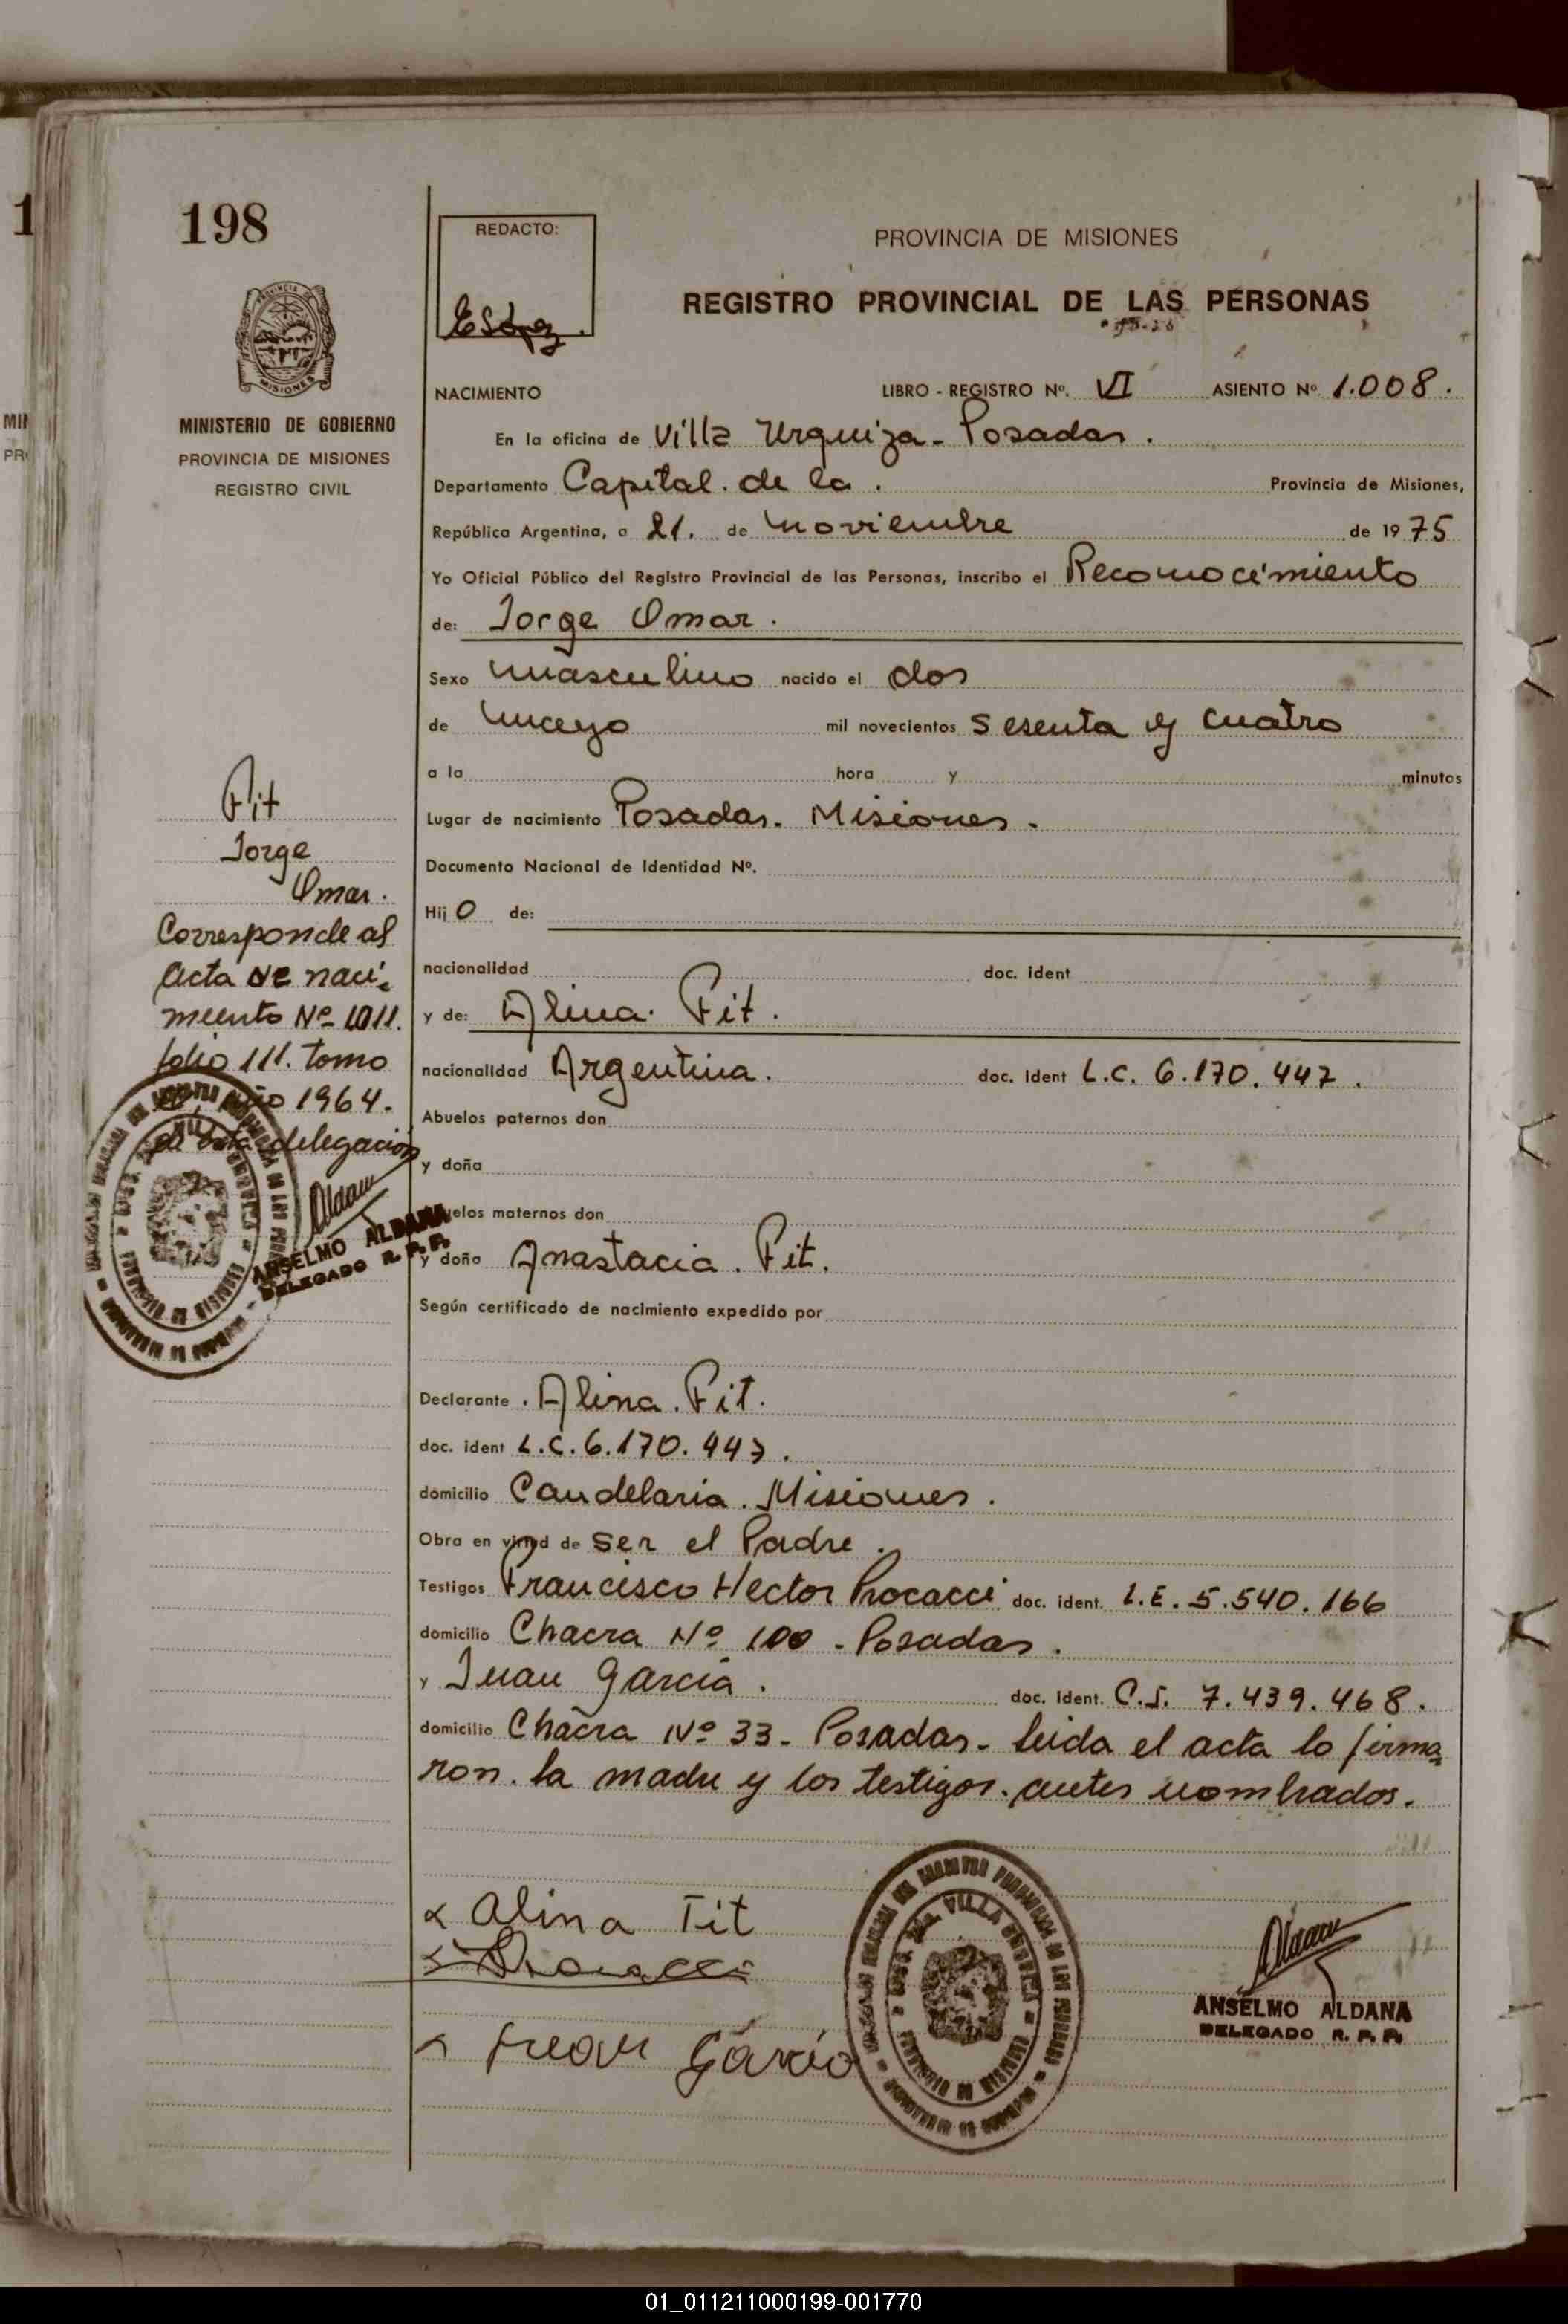 198
MINISTERIO DE GOBIERNO
PROVINCIA DE MISIONES
REGISTRO CIVIL
REDACTO:
PROVINCIA DE MISIONES
REGISTRO PROVINCIAL DE LAS PERSONAS
NACIMIENTO LIBRO - REGISTRO Nº. VI ASIENTO Nº 1.008.
En la oficina de Villa Urquiza - Posadas.
Departamento Capital. de la. Provincia de Misiones,
República Argentina, a 21. de noviembre de 1975
Yo Oficial Público del Registro Provincial de las Personas, inscribo el Reconocimiento
de: Jorge Omar.
Sexo masculino nacido el dos
de mayo mil novecientos sesenta y cuatro
a la hora y minutos
Lugar de nacimiento Posadas. Misiones.
Documento Nacional de Identidad Nº.
Hijo de:
nacionalidad doc. ident
y de: Alina. Fit.
nacionalidad Argentina. doc. ident L.C. 6.170.447.
Abuelos paternos don
y doña
elos maternos don
y doña Anastacia. Fit.
Según certificado de nacimiento expedido por
Declarante. Alina. Fit.
doc. ident L.C. 6.170.447.
domicilio Candelaria. Misiones.
Obra en virtud de ser el Padre.
Testigos Francisco Hector Procacci doc. ident. L.E. 5.540.166
domicilio Chacra Nº 100 - Posadas.
y Juan Garcia. doc. ident. C.I. 7.439.468.
domicilio Chacra Nº 33 - Posadas - leida el acta lo firma
ron. la madre y los testigos. antes nombrados.
Fit
Jorge
Omar.
Corresponde al
acta de naci-
miento Nº 1011.
folio 111. tomo
año 1964.
de esta delegación
ANSELMO ALDANA
DELEGADO R. P. P.
Alina Fit
Procacci
Juan García
VILLA URQUIZA
ANSELMO ALDANA
DELEGADO R. P. P.
01_011211000199-001770